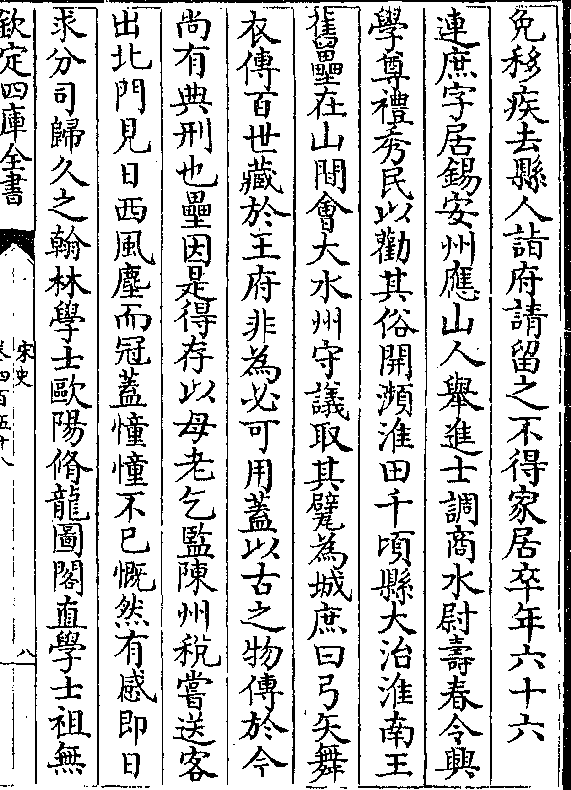 免移疾去縣人詣府請留之不得家居卒年六十六
連庶字居錫安州應山人舉進士調商水尉壽春令興
學尊禮秀民以勸其俗開瀕淮田千頃縣大治淮南王
舊壘在山間會大水州守議取其甓為城庶曰弓矢舞
衣傳百世藏於王府非為必可用蓋以古之物傳於今
尚有典刑也壘因是得存以母老乞監陳州稅嘗送客
出北門見日西風塵而冠蓋憧憧不已慨然有感即日
求分司歸久之翰林學士歐陽脩龍圖閣直學士祖無
欽定四庫全書
宋史
卷四百五十八
八